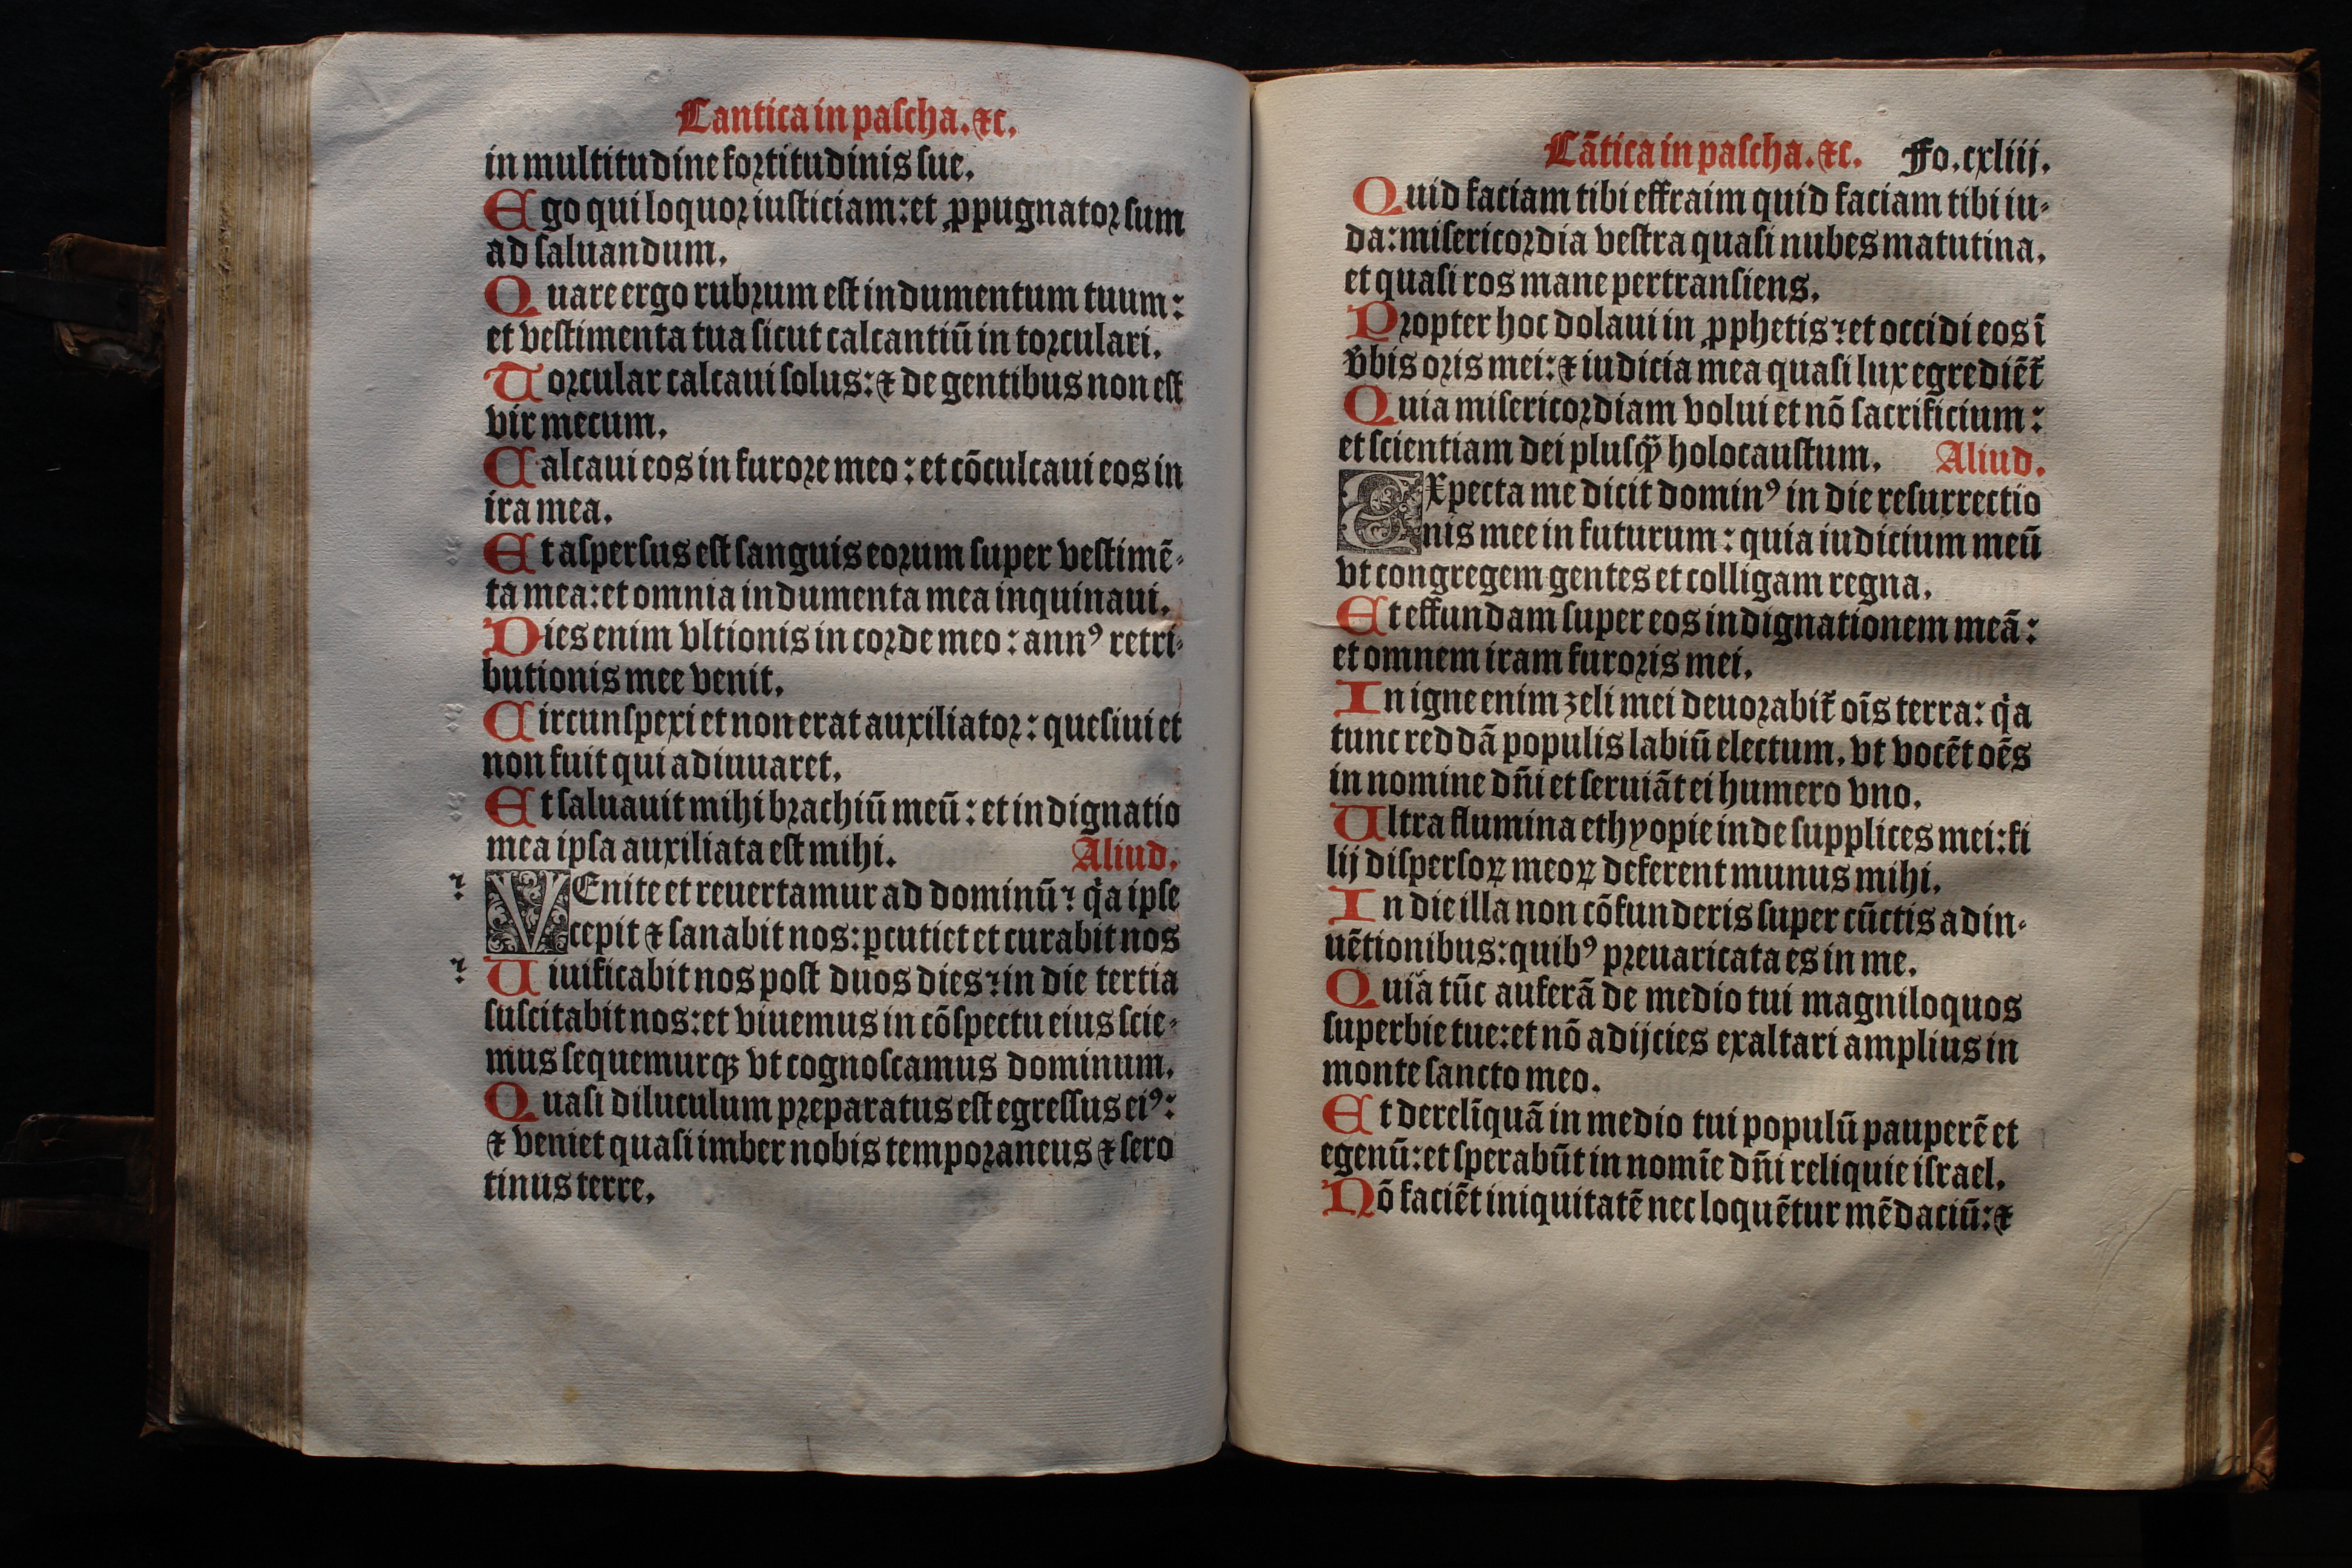 Cantica in pascha. ⁊c.
in multitudine fortitudinis sue.
Ego qui loquor iusticiam: et ꝓpugnator sum
ad saluandum.
Quare ergo rubrum est indumentum tuum:
et vestimenta tua sicut calcantiū in torculari.
Torcular calcaui solus: ⁊ de gentibus non est
vir mecum.
Calcaui eos in furore meo: et cōculcaui eos in
ira mea.
Et aspersus est sanguis eorum super vestimē-
ta mea: et omnia indumenta mea inquinaui.
Dies enim vltionis in corde meo: annꝰ retri-
butionis mee venit.
Circunspexi et non erat auxiliator: quesiui et
non fuit qui adiuuaret.
Et saluauit mihi brachiū meū: et indignatio
mea ipsa auxiliata est mihi. Aliud.
VEnite et reuertamur ad dominū: qͥa ipse
cepit ⁊ sanabit nos: ꝑcutiet et curabit nos
Uiuificabit nos post duos dies: in die tertia
suscitabit nos: et viuemus in cōspectu eius scie-
mus sequemurqꝫ vt cognoscamus dominum.
Quasi diluculum preparatus est egressus eiꝰ:
⁊ veniet quasi imber nobis temporaneus ⁊ sero
tinus terre.
Cātica in pascha. ⁊c. Fo. cxliij.
Quid faciam tibi effraim quid faciam tibi iu-
da: misericordia vestra quasi nubes matutina.
et quasi ros mane pertransiens.
Propter hoc dolaui in ꝓphetis: et occidi eos ī
v̄bis oris mei: ⁊ iudicia mea quasi lux egrediēt̄
Quia misericordiam volui et nō sacrificium:
et scientiam dei plusqꝫ̄ holocaustum. Aliud.
EXpecta me dicit dominꝰ in die resurrectio
nis mee in futurum: quia iudicium meū
vt congregem gentes et colligam regna.
Et effundam super eos indignationem meā:
et omnem iram furoris mei.
In igne enim zeli mei deuorabit̄ oīs terra: qͥa
tunc reddā populis labiū electum. vt vocēt oēs
in nomine dn̄i et seruiāt ei humero vno.
Ultra flumina ethyopie inde supplices mei: fi
lij dispersoꝝ meoꝝ deferent munus mihi.
In die illa non cōfunderis super cūctis adin-
uētionibus: quibꝰ preuaricata es in me.
Quia tūc auferā de medio tui magniloquos
superbie tue: et nō adijcies exaltari amplius in
monte sancto meo.
Et derelīquā in medio tui populū pauperē et
egenū: et sperabūt in nomīe dn̄i reliquie israel.
Nō faciēt iniquitatē nec loquētur mēdaciū: ⁊